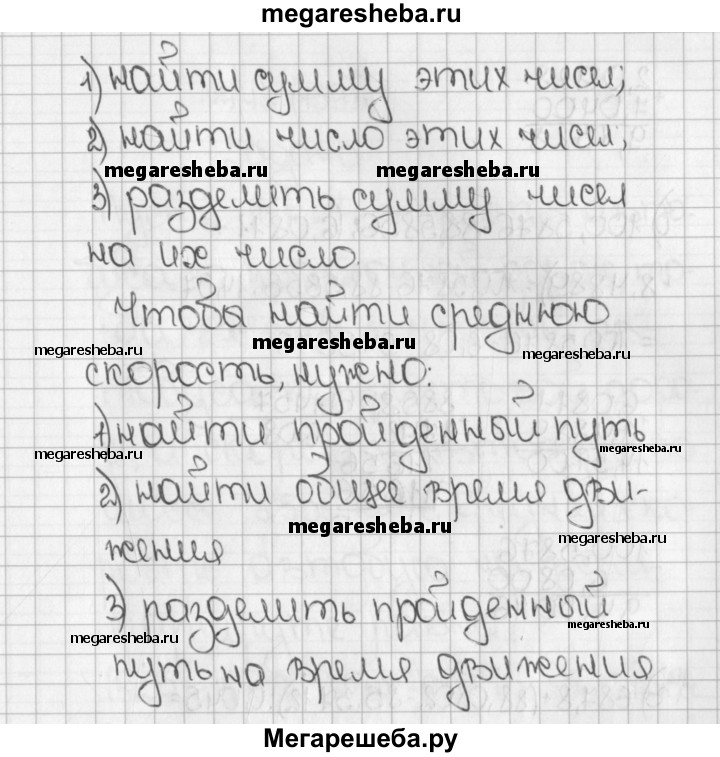 megaresheba.ru
1) найти сумму этих чисел;
2) найти число этих чисел;
megaresheba.ru megaresheba.ru
3) разделить сумму чисел
на их число.
Чтобы найти среднюю
megaresheba.ru megaresheba.ru megaresheba.ru
скорость, нужно:
1) найти пройденный путь
megaresheba.ru megaresheba.ru
2) найти общее время дви-
megaresheba.ru megaresheba.ru
жения
3) разделить пройденный
megaresheba.ru megaresheba.ru
путь на время движения
Мегарешеба.ру